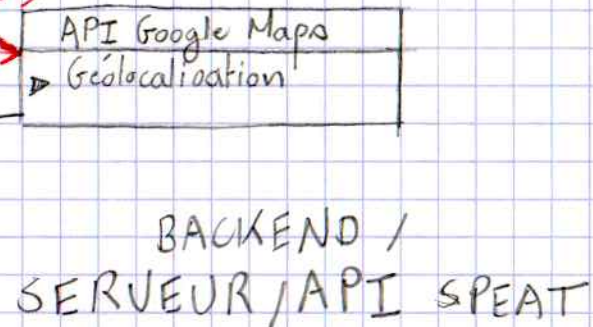 API Google Maps
▷ Géolocalisation
BACKEND /
SERVEUR / API SPEAT